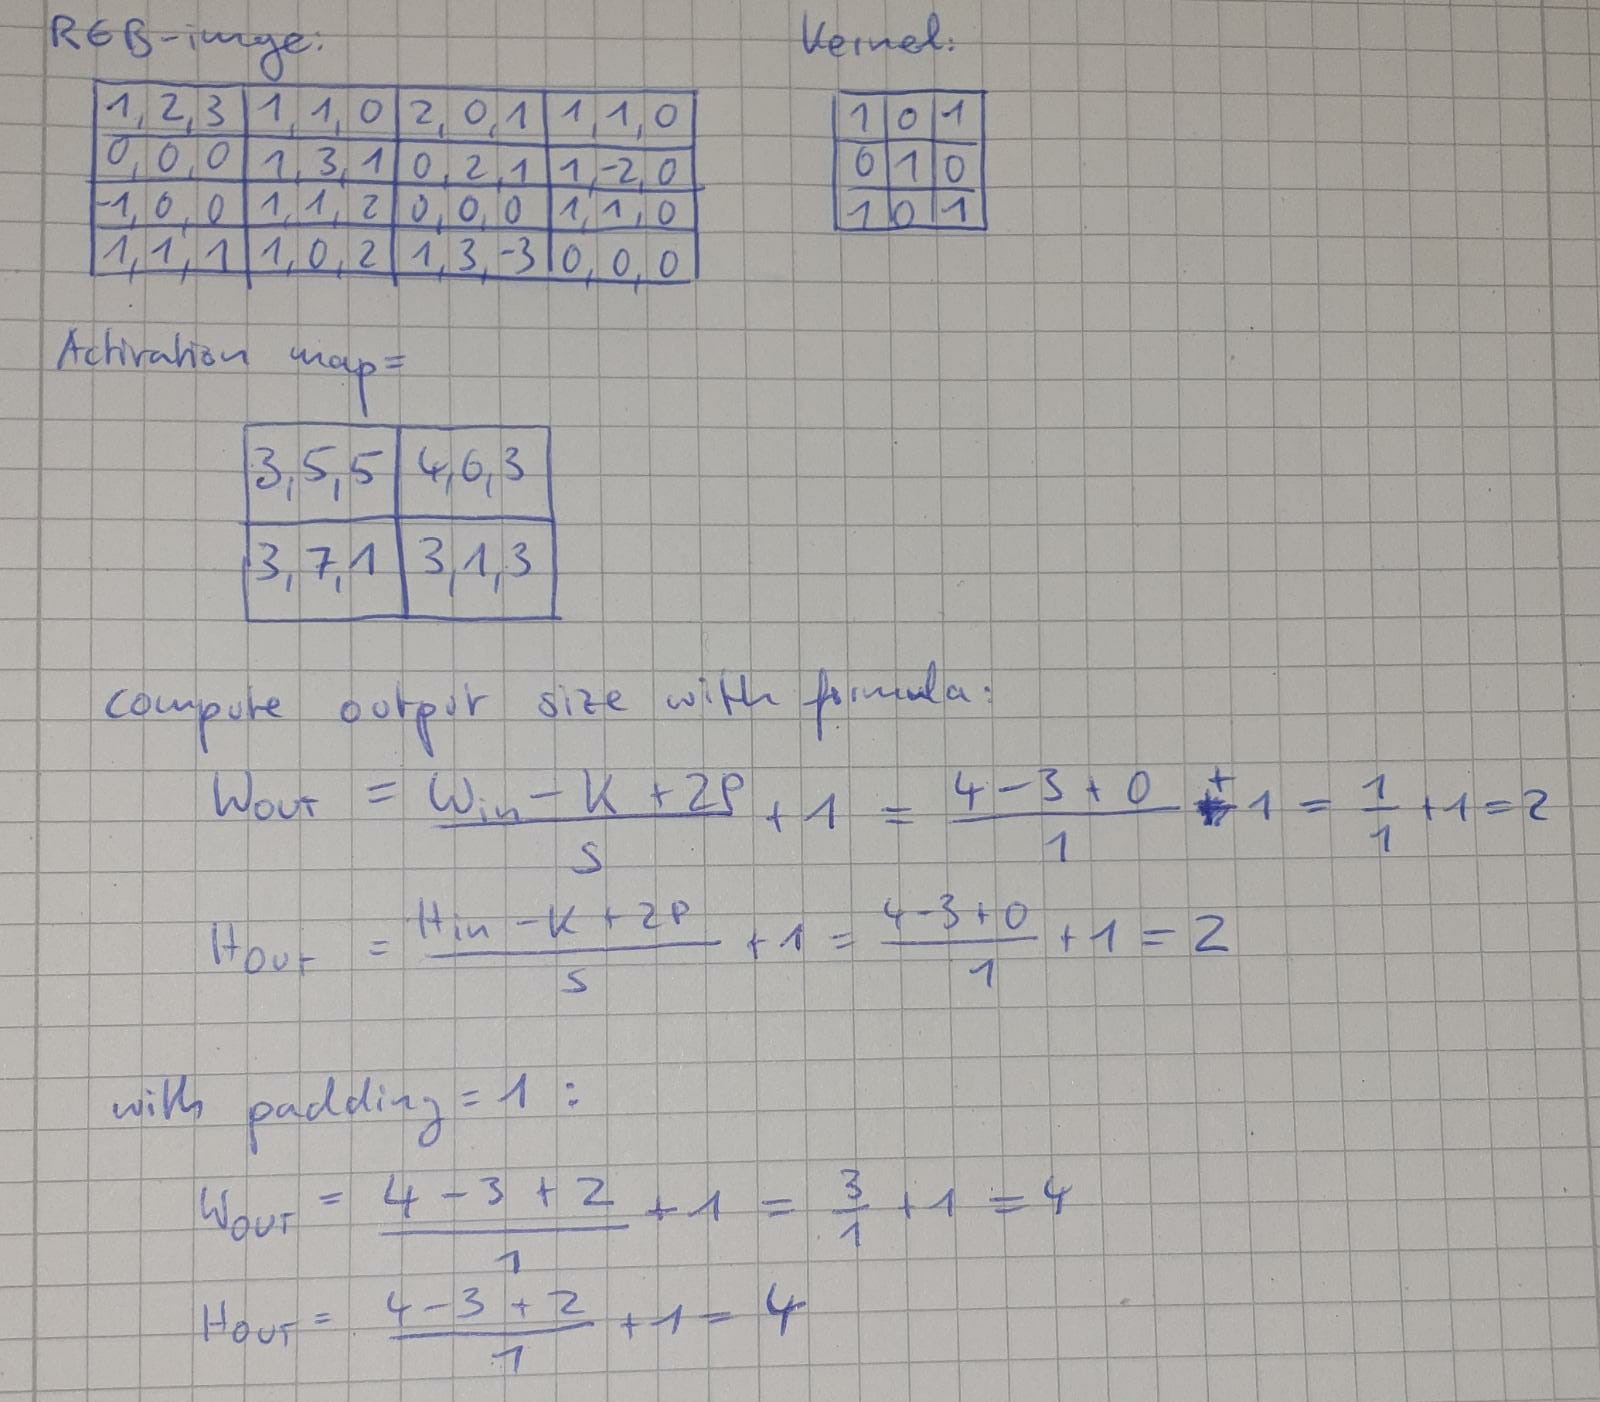 RGB-image: Kernel:
1,2,3 1,1,0 2,0,1 1,1,0 1 0 1
0,0,0 1,3,1 0,2,1 1,-2,0 0 1 0
-1,0,0 1,1,2 0,0,0 1,1,0 1 0 1
1,1,1 1,0,2 1,3,-3 0,0,0
Activation map=
3,5,5 4,6,3
3,7,1 3,1,3
compute output size with formula:
WOUT = (Win - K + 2P)/S + 1 = (4 - 3 + 0)/1 + 1 = 1/1 + 1 = 2
HOUT = (Hin - K + 2P)/S + 1 = (4 - 3 + 0)/1 + 1 = 2
with padding = 1 :
WOUT = (4 - 3 + 2)/1 + 1 = 3/1 + 1 = 4
HOUT = (4 - 3 + 2)/1 + 1 = 4